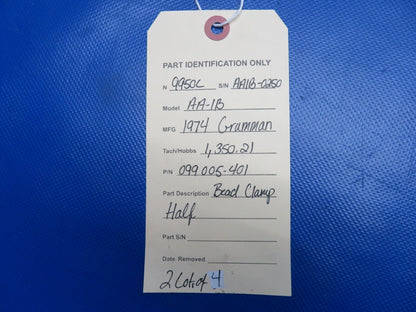 PART IDENTIFICATION ONLY
N 9950L S/N AA1B-0250
Model AA-1B
MFG 1974 Grumman
Tach/Hobbs 1,350.21
P/N 099.005-401
Part Description Bead Clamp
Half
Part S/N
Date Removed
2 Lot of 4